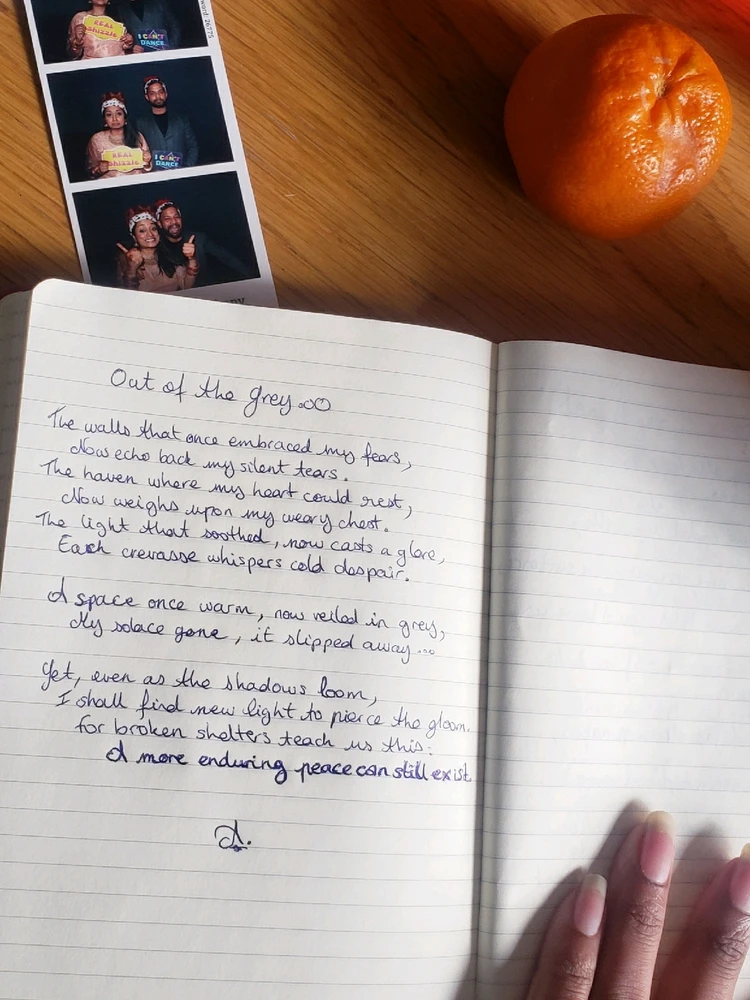 REAL
Shizzle
I CAN'T
DANCE
REAL
Shizzle
I CAN'T
DANCE
Out of the grey...
The walls that once embraced my fears,
Now echo back my silent tears.
The haven where my heart could rest,
Now weighs upon my weary chest.
The light that soothed, now casts a glare,
Each crevasse whispers cold despair.
A space once warm, now veiled in grey,
My solace gone, it slipped away...
Yet, even as the shadows loom,
I shall find new light to pierce the gloom.
for broken shelters teach us this:
A more enduring peace can still exist
A.